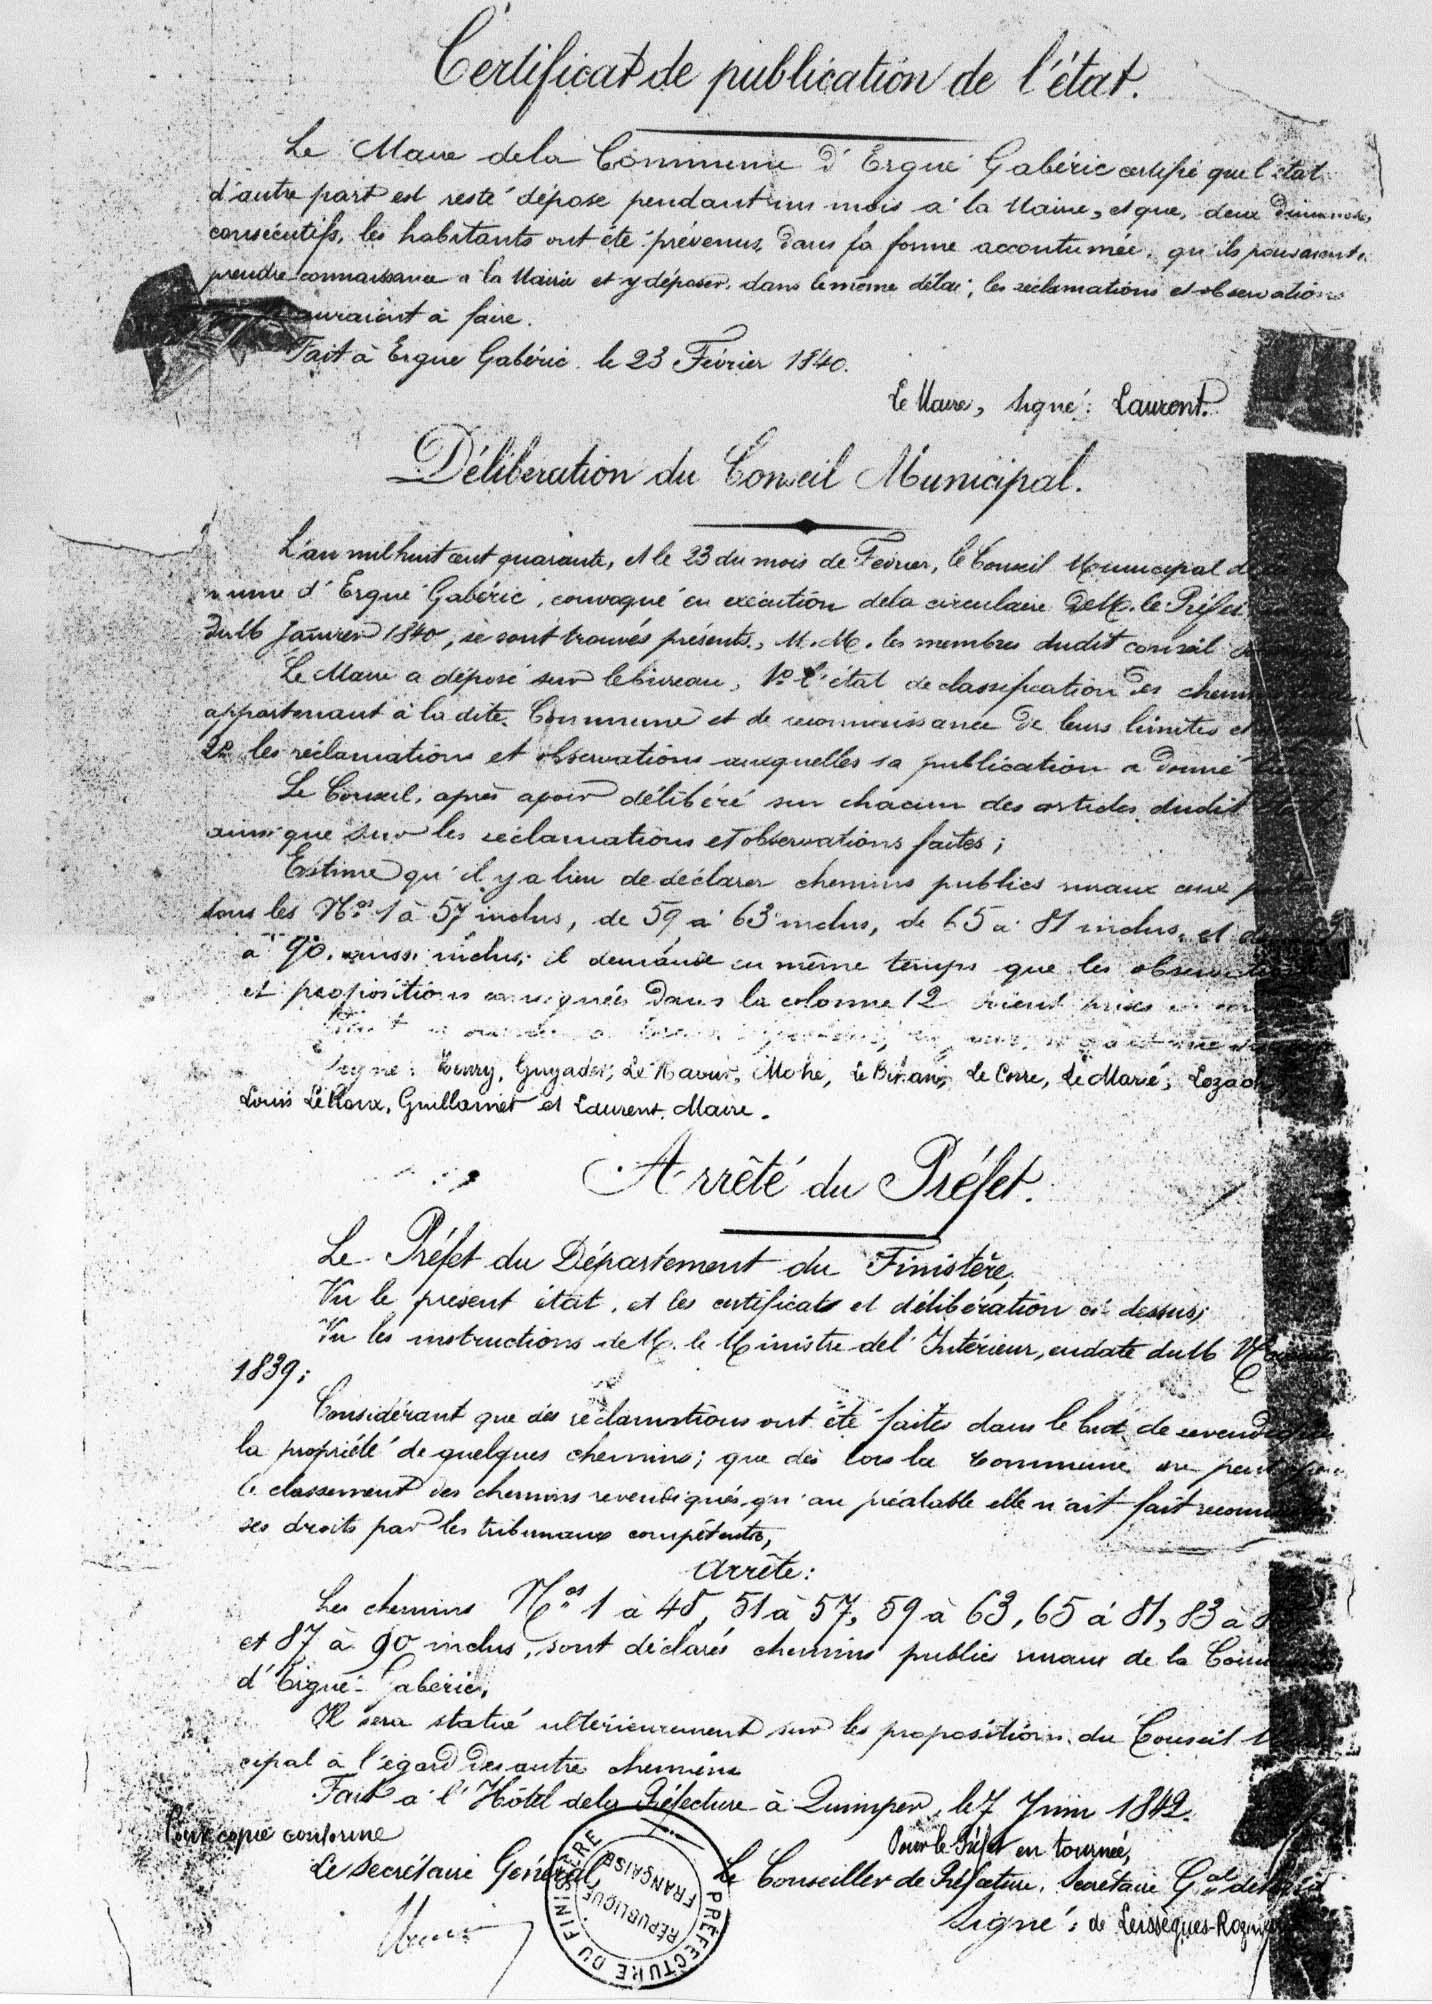 Certificat de publication de l'état.
Le Maire de la Commune d'Ergué Gabéric certifie que l'état
d'autre part est resté déposé pendant un mois à la Mairie, et que, deux dimanches
consécutifs, les habitants ont été prévenus, dans la forme accoutumée, qu'ils pouvaient
prendre connaissance à la Mairie et y déposer, dans le même délai, les réclamations et observations
auraient à faire.
Fait à Ergué Gabéric le 23 Février 1840.
Le Maire, signé: Laurent.
Délibération du Conseil Municipal.
L'an mil huit cent quarante, et le 23 du mois de Février, le Conseil Municipal de la
mune d'Ergué Gabéric, convoqué en exécution de la circulaire de M. le Préfet
du 16 Janvier 1840, se sont trouvés présents, M.M. les membres dudit conseil
Le Maire a déposé sur le bureau, 1º l'état de classification des chemins
appartenant à la dite Commune et de reconnaissance de leurs limites et
2º les réclamations et observations auxquelles sa publication a donné lieu
Le Conseil, après avoir délibéré sur chacun des articles dudit état
ainsi que sur les réclamations et observations faites;
Estime qu'il y a lieu de déclarer chemins publics ruraux ceux portés
sous les Nos 1 à 57 inclus, de 59 à 63 inclus, de 65 à 81 inclus, et de
à 90, aussi inclus; il demande en même temps que les observations
et propositions consignées dans la colonne 12 soient prises en
Signé: Henry, Guyader, Le Naour, Mahé, Le Bihan, Le Corre, Le Marié, Lozach
Louis Le Roux, Guillamet et Laurent, Maire.
Arrêté du Préfet.
Le Préfet du Département du Finistère,
Vu le présent état, et les certificats et délibération ci-dessus;
Vu les instructions de M. le Ministre de l'Intérieur, en date du 16 Novembre
1839;
Considérant que des réclamations ont été faites dans le but de revendiquer
la propriété de quelques chemins; que dès lors la Commune ne peut
le classement des chemins revendiqués, qu'au préalable elle n'ait fait reconnaître
ses droits par les tribunaux compétents,
Arrête:
Les chemins Nos 1 à 48, 51 à 57, 59 à 63, 65 à 81, 83 à
et 87 à 90 inclus, sont déclarés chemins publics ruraux de la Commune
d'Ergué-Gabéric.
Il sera statué ultérieurement sur les propositions du Conseil Muni
cipal à l'égard des autre chemins
Fait à l'Hôtel de la Préfecture à Quimper, le 7 Juin 1842.
Pour copie conforme
Pour le Préfet en tournée,
Le Secrétaire Général,
Le Conseiller de Préfecture, Secrétaire Gal délégué
Signé: de Leissègues-Rozaven
PRÉFECTURE DU FINISTÈRE
RÉPUBLIQUE FRANÇAISE